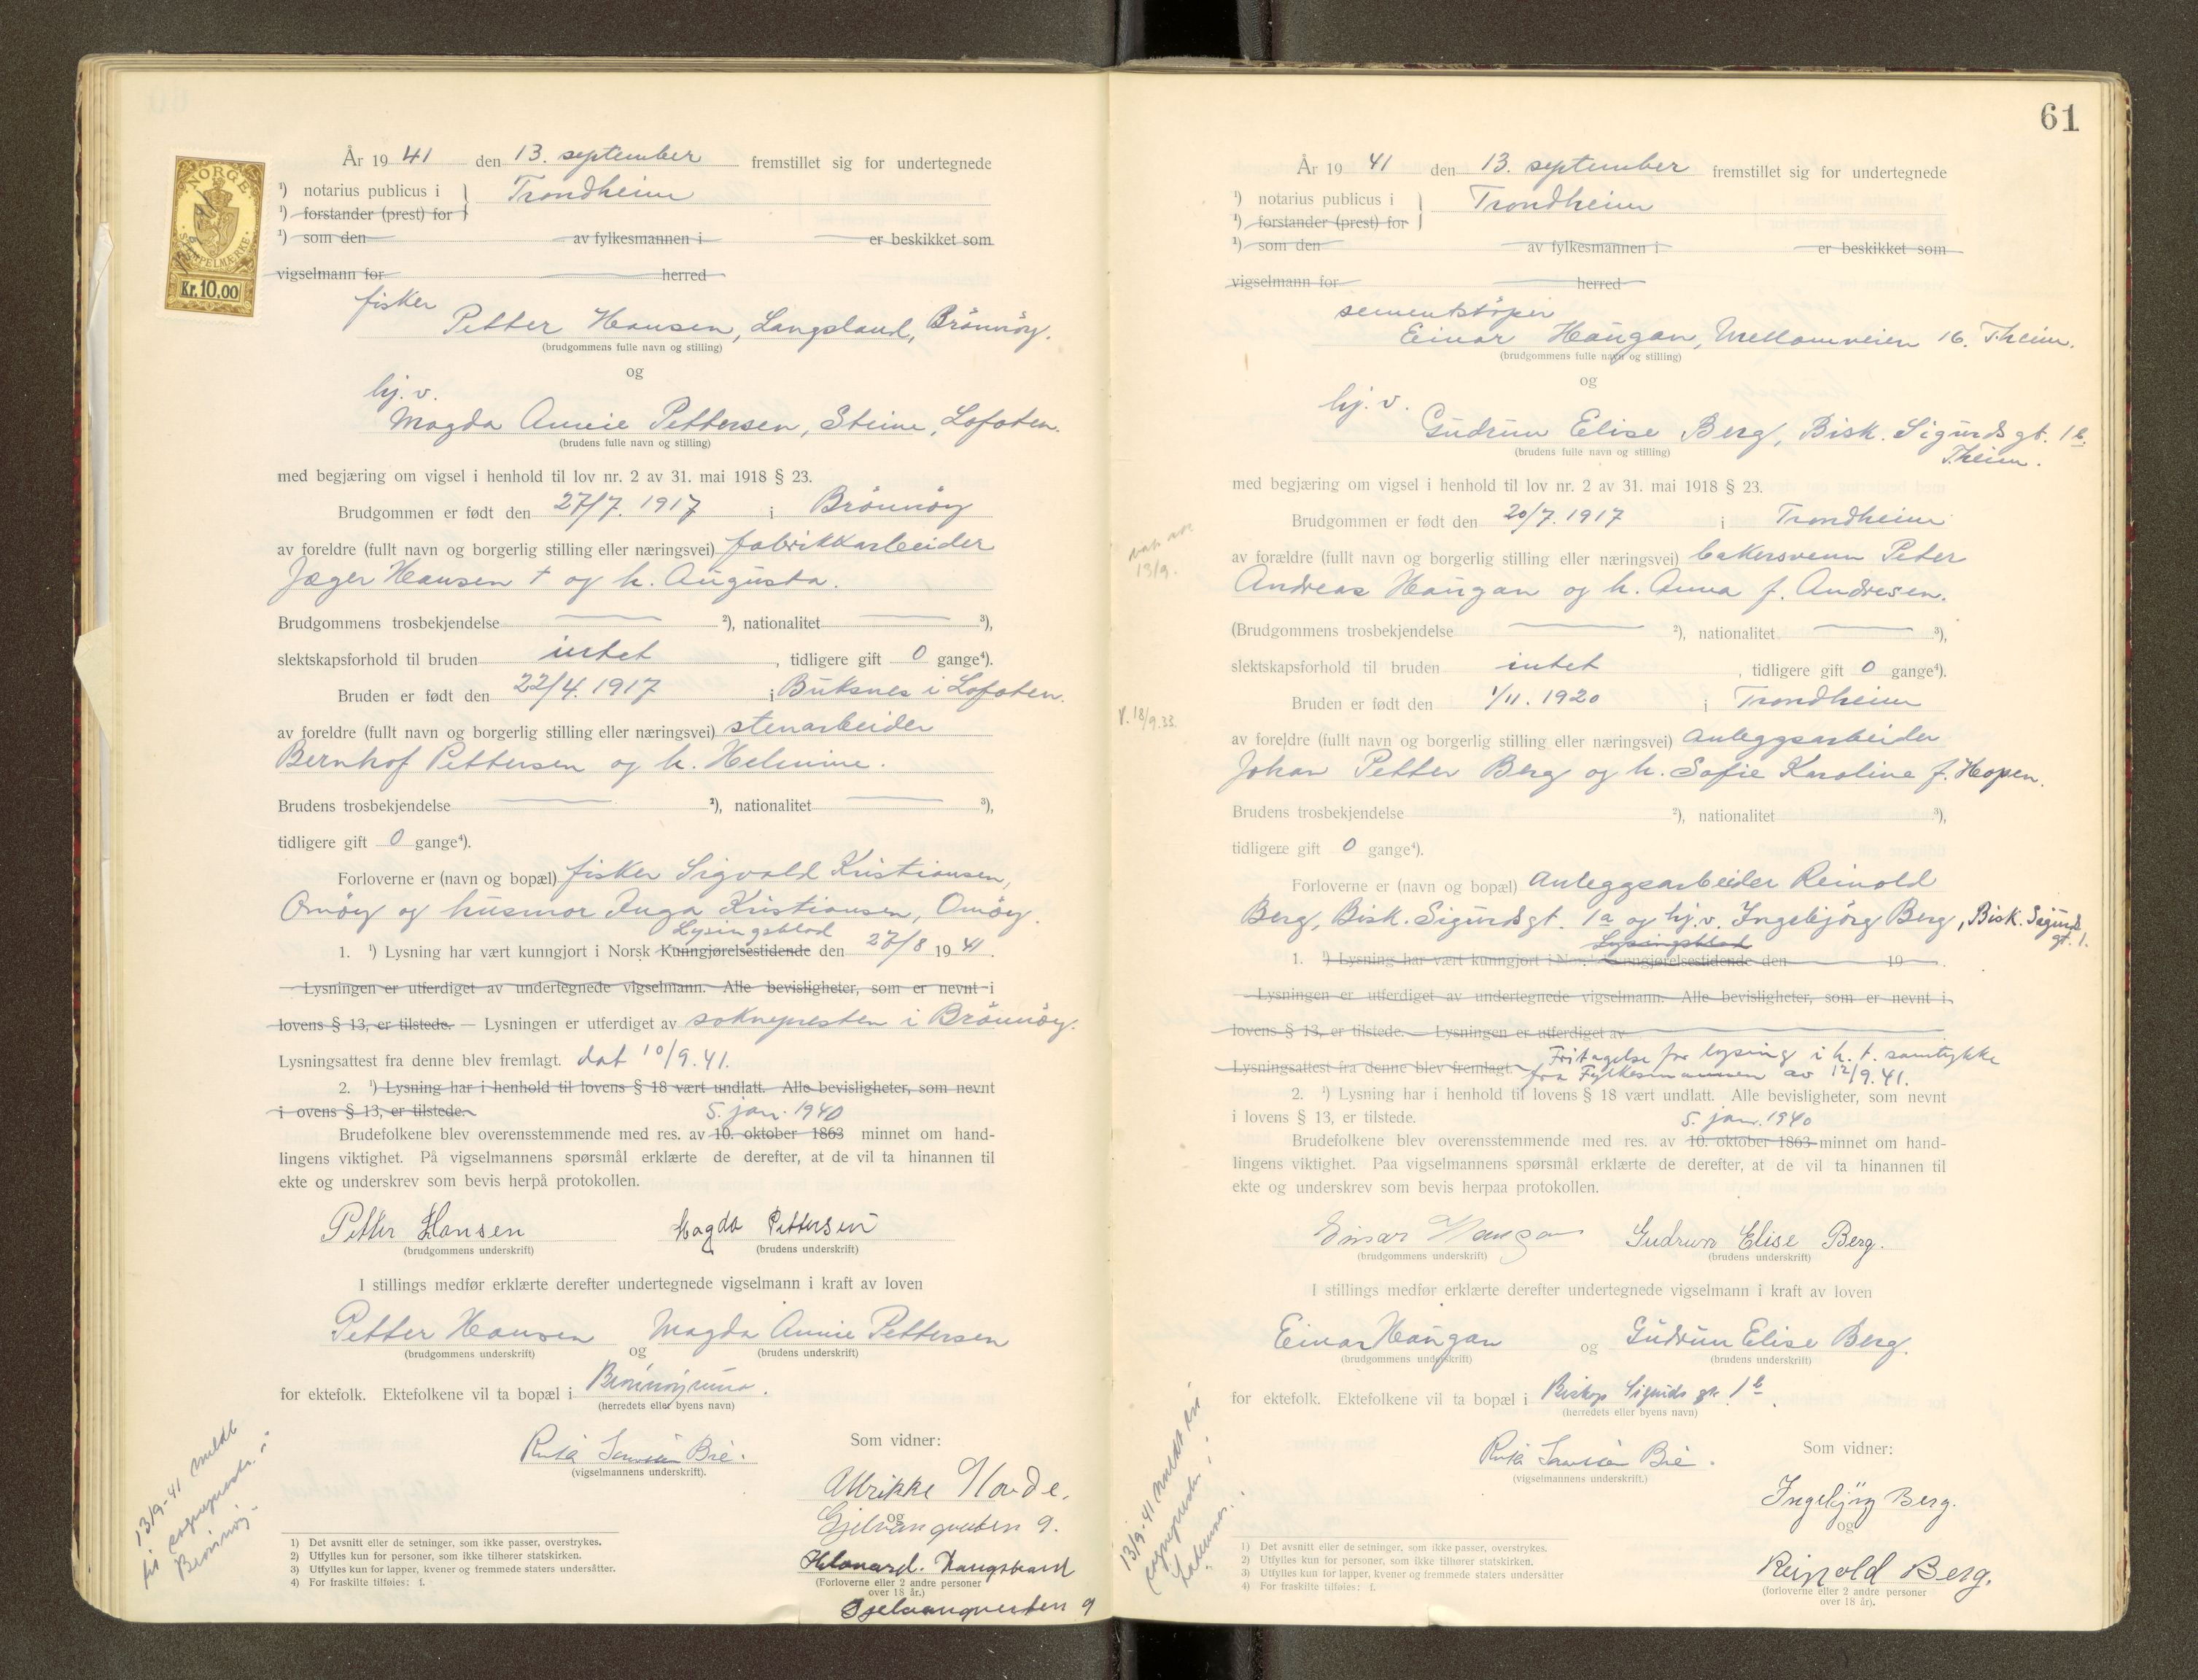 År 1941 den 13. september fremstillet sig for undertegnede
¹) notarius publicus i } Trondheim
¹) forstander (prest) for
¹) som den av fylkesmannen i er beskikket som
vigselmann for herred
NORGE
STEMPELMERKE
Kr. 10.00
fisker
Petter Hansen, Langsland, Brönnöy.
(brudgommens fulle navn og stilling)
og
hj. v.
Magda Annie Pettersen, Steine, Lofoten.
(brudens fulle navn og stilling)
med begjæring om vigsel i henhold til lov nr. 2 av 31. mai 1918 § 23.
Brudgommen er født den 27/7. 1917 i Brönnöy
av foreldre (fullt navn og borgerlig stilling eller næringsvei) fabrikkarbeider
Jæger Hansen † og h. Augusta.
Brudgommens trosbekjendelse — ²), nationalitet — ³),
slektskapsforhold til bruden intet, tidligere gift 0 gange⁴).
Bruden er født den 22/4. 1917 i Buksnes i Lofoten.
av foreldre (fullt navn og borgerlig stilling eller næringsvei) stenarbeider
Bernhof Pettersen og h. Helmine.
Brudens trosbekjendelse — ²), nationalitet — ³),
tidligere gift 0 gange⁴).
Forloverne er (navn og bopæl) fisker Sigvald Kristiansen,
Omöy og husmor Inga Kristiansen, Omöy.
Lysingsblad
1. ¹) Lysning har vært kunngjort i Norsk Kunngjørelsestidende den 27/8 1941.
Lysningen er utferdiget av undertegnede vigselmann. Alle bevisligheter, som er nevnt i
lovens § 13, er tilstede. — Lysningen er utferdiget av soknepresten i Brönnöy.
Lysningsattest fra denne blev fremlagt. dat 10/9. 41.
2. ¹) Lysning har i henhold til lovens § 18 vært undlatt. Alle bevisligheter, som nevnt
i ovens § 13, er tilstede.
5. jan. 1940
Brudefolkene blev overensstemmende med res. av 10. oktober 1863 minnet om hand-
lingens viktighet. På vigselmannens spørsmål erklærte de derefter, at de vil ta hinannen til
ekte og underskrev som bevis herpå protokollen.
Petter Hansen Magda Pettersen
(brudgommens underskrift) (brudens underskrift)
I stillings medfør erklærte derefter undertegnede vigselmann i kraft av loven
Petter Hansen og Magda Annie Pettersen
(brudgommens underskrift) (brudens underskrift)
for ektefolk. Ektefolkene vil ta bopæl i Brönnöysund.
(herredets eller byens navn)
Bie.
(vigselmannens underskrift).
Som vidner:
Ulrikke
og
9.
(Forloverne eller 2 andre personer
over 18 år.)
9
13/9-41 meldt
til sogneprest. i
Brönnöy.
1) Det avsnitt eller de setninger, som ikke passer, overstrykes.
2) Utfylles kun for personer, som ikke tilhører statskirken.
3) Utfylles kun for lapper, kvener og fremmede staters undersåtter.
4) For fraskilte tilføies: f.
61
År 1941 den 13. september fremstillet sig for undertegnede
¹) notarius publicus i } Trondheim
¹) forstander (prest) for
¹) som den av fylkesmannen i er beskikket som
vigselmann for herred
sementstöper
Einar Haugan, Mellomveien 16. T.heim.
(brudgommens fulle navn og stilling)
og
hj. v.
Gudrun Elise Berg, Bisk. Sigurds gt. 1 b.
T.heim.
(brudens fulle navn og stilling)
med begjæring om vigsel i henhold til lov nr. 2 av 31. mai 1918 § 23.
Brudgommen er født den 20/7. 1917 i Trondheim
13/9.
av forældre (fullt navn og borgerlig stilling eller næringsvei) bakersvenn Peter
Andreas Haugan og h. Anna f. Andresen.
(Brudgommens trosbekjendelse — ²), nationalitet — ³),
slektskapsforhold til bruden intet, tidligere gift 0 gange⁴).
Bruden er født den 1/11. 1920 i Trondheim
v. 18/9.33.
av foreldre (fullt navn og borgerlig stilling eller næringsvei) anleggsarbeider
Johan Petter Berg og h. Sofie Karoline f. Hopen.
Brudens trosbekjendelse ²), nationalitet ³),
tidligere gift 0 gange⁴).
Forloverne er (navn og bopæl) anleggsarbeider Reinold
Berg, Bisk. Sigurdsgt. 1 a og hj. v. Ingebjörg Berg, Bisk. Sigurds
gt. 1.
Lysingsblad
1. ¹) Lysning har vært kunngjort i Norsk Kunngjørelsestidende den 19 .
Lysningen er utferdiget av undertegnede vigselmann. Alle bevisligheter, som er nevnt i
lovens § 13, er tilstede. — Lysningen er utferdiget av
Lysningsattest fra denne blev fremlagt. Fritagelse for lysing i h. t. samtykke
fra Fylkesmannen av 12/9. 41.
2. ¹) Lysning har i henhold til lovens § 18 vært undlatt. Alle bevisligheter, som nevnt
i lovens § 13, er tilstede.
5. jan. 1940
Brudefolkene blev overensstemmende med res. av 10. oktober 1863 minnet om hand-
lingens viktighet. Paa vigselmannens spørsmål erklærte de derefter, at de vil ta hinannen til
ekte og underskrev som bevis herpaa protokollen.
Einar Haugan Gudrun Elise Berg.
(brudgommens underskrift) (brudens underskrift)
I stillings medfør erklærte derefter undertegnede vigselmann i kraft av loven
Einar Haugan og Gudrun Elise Berg.
(brudgommens underskrift) (brudens underskrift)
for ektefolk. Ektefolkene vil ta bopæl i Biskop Sigurds gt. 1 b.
(herredets eller byens navn)
Bie.
(vigselmannens underskrift.)
Som vidner:
Ingebjörg Berg.
og
Reinold Berg.
(forloverne eller 2 andre personer
over 18 år).
13/9-41 meldt til
sogneprest i
1) Det avsnitt eller de setninger, som ikke passer, overstrykes.
2) Utfylles kun for personer, som ikke tilhører statskirken.
3) Utfylles kun for lapper, kvener og fremmede staters undersåtter
4) For fraskilte tilføies: f.